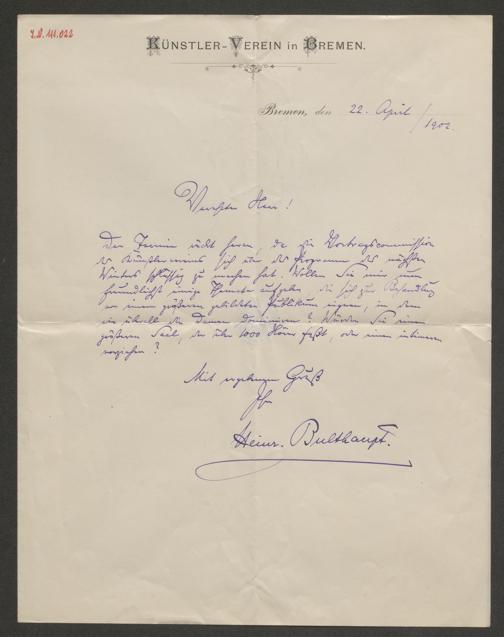 I.N. 111.022
KÜNSTLER-VEREIN in BREMEN.
Bremen, den 22. April
1902.
Verehrter Herr!
Der Termin rückt heran, da die Vortragscommission
des Künstlervereins sich über das Programm des nächsten
Winters schlüssig zu machen hat. Wollen Sie mir nun
freundlichst einige Themata aufgeben, die sich zur Behandlung
vor einem größeren gebildeten Publikum eignen, in dem
wie überall die Damen dominiren? Würden Sie einen
größeren Saal, der über 1000 Hörer faßt, oder einen intimeren
vorziehen?
Mit ergebenem Gruß
Ihr
Heinr. Bulthaupt.